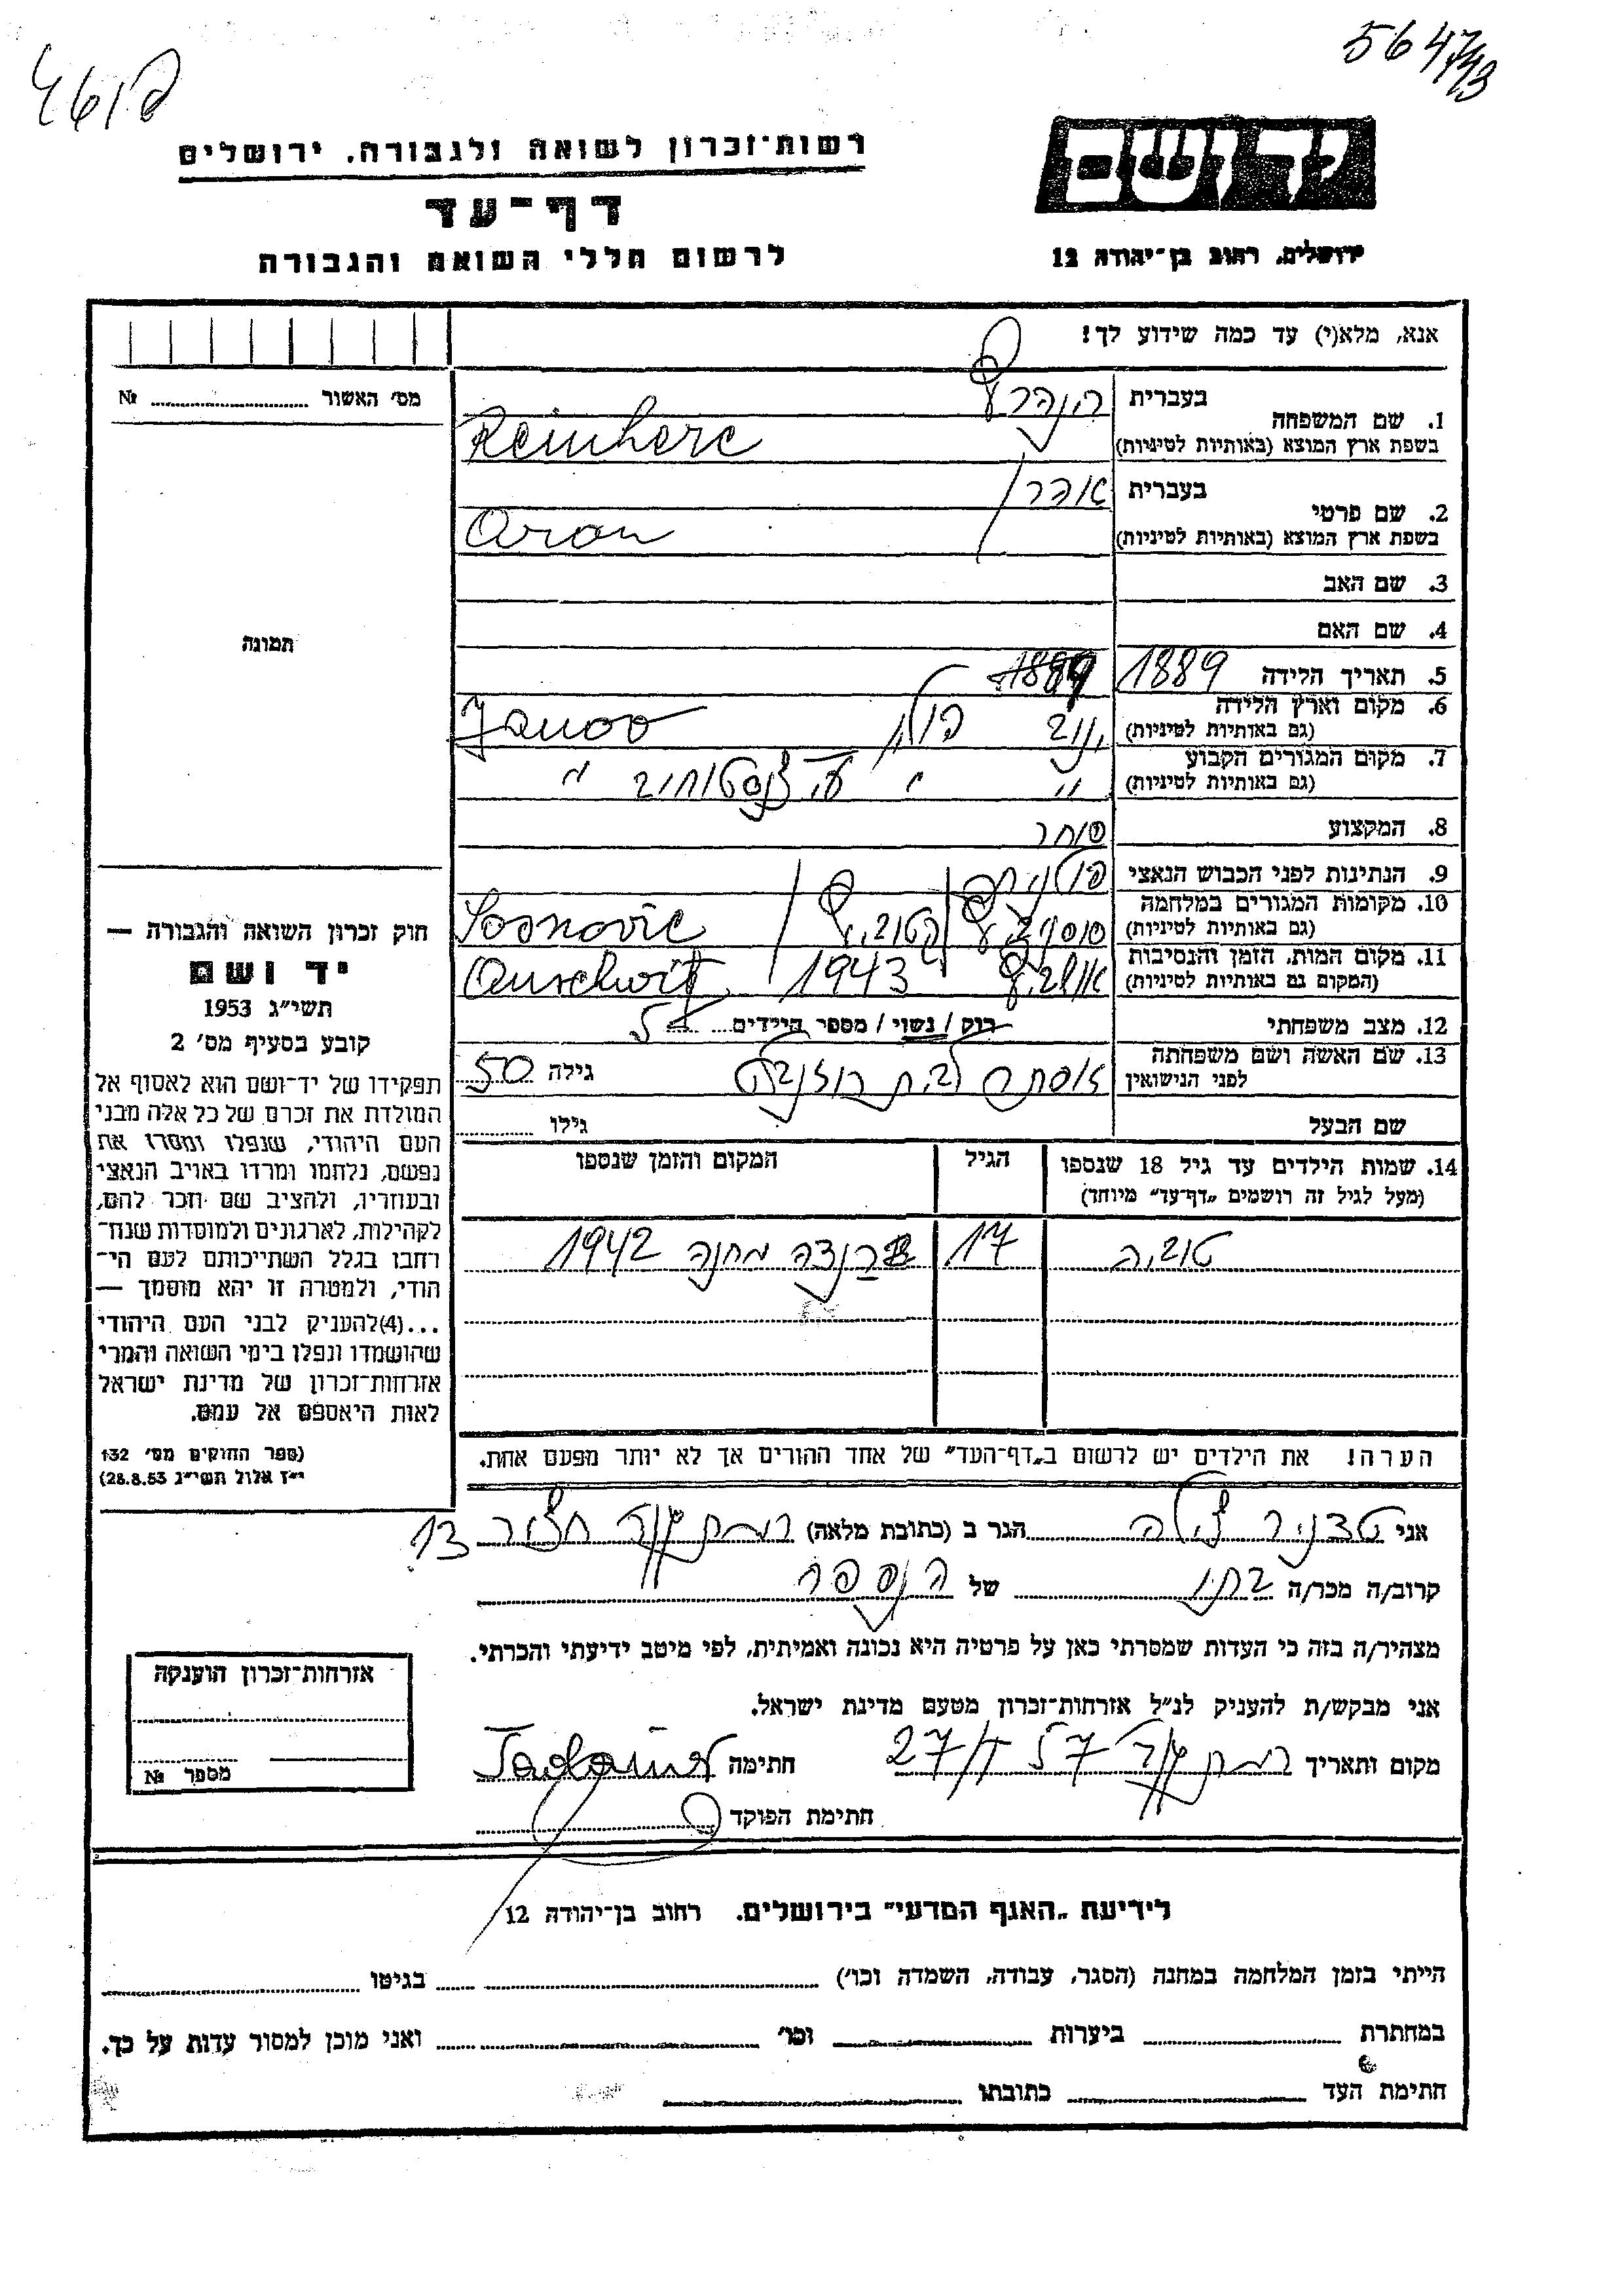 564743
רשות־זכרון לשואה ולגבורה, ירושלים
יד ושם
דף־עד
לרשום חללי השואה והגבורה
ירושלים, רחוב בן־יהודה 12
אנא, מלא(י) עד כמה שידוע לך!
מס׳ האשור № 
1. שם המשפחה
בעברית
בשפת ארץ המוצא (באותיות לטיניות) Reinherc
2. שם פרטי
בעברית אהרן
בשפת ארץ המוצא (באותיות לטיניות) Aron
3. שם האב
4. שם האם
תמונה
5. תאריך הלידה 1889
6. מקום וארץ הלידה
(גם באותיות לטיניות) ינוב פולין Janoo
7. מקום המגורים הקבוע
(גם באותיות לטיניות) " "
8. המקצוע סוחר
9. הנתינות לפני הכבוש הנאצי פולנית
10. מקומות המגורים במלחמה
(גם באותיות לטיניות) Sosnovic
11. מקום המות, הזמן והנסיבות
(המקום גם באותיות לטיניות) 1943 Auschwitz
12. מצב משפחתי רוק / נשוי / מספר הילדים 5
13. שם האשה ושם משפחתה
לפני הנישואין אסתר לבית גילה 50
שם הבעל גילו
14. שמות הילדים עד גיל 18 שנספו
(מעל לגיל זה רושמים „דף־עד״ מיוחד)
הגיל
המקום והזמן שנספו
טוביה 17 מחנה 1942
הערה! את הילדים יש לרשום ב„דף־העד״ של אחד ההורים אך לא יותר מפעם אחת.
חוק זכרון השואה והגבורה —
יד ושם
תשי״ג 1953
קובע בסעיף מס׳ 2
תפקידו של יד־ושם הוא לאסוף אל
המולדת את זכרם של כל אלה מבני
העם היהודי, שנפלו ומסרו את
נפשם, נלחמו ומרדו באויב הנאצי
ובעוזריו, ולהציב שם וזכר להם,
לקהילות, לארגונים ולמוסדות שנח־
רחבו בגלל השתייכותם לעם הי־
הודי, ולמטרה זו יהא מוסמך —
...(4) להעניק לבני העם היהודי
שהושמדו ונפלו בימי השואה והמרי
אזרחות־זכרון של מדינת ישראל
לאות היאספם אל עמם.
(ספר החוקים מס׳ 132
י״ז אלול תשי״ג 28.8.53)
אני צילה הגר ב (כתובת מלאה) רמת גן 13
קרוב/ה מכר/ה בתו של הנספה
מצהיר/ה בזה כי העדות שמסרתי כאן על פרטיה היא נכונה ואמיתית, לפי מיטב ידיעתי והכרתי.
אני מבקש/ת להעניק לנ״ל אזרחות־זכרון מטעם מדינת ישראל.
מקום ותאריך 27 57 חתימה
חתימת הפוקד
אזרחות־זכרון הוענקה
מספר №
לידיעת „האגף המדעי״ בירושלים. רחוב בן־יהודה 12
הייתי בזמן המלחמה במחנה (הסגר, עבודה, השמדה וכו׳) בגיטו
במחתרת ביערות וכו׳ ואני מוכן למסור עדות על כך.
חתימת העד כתובתו